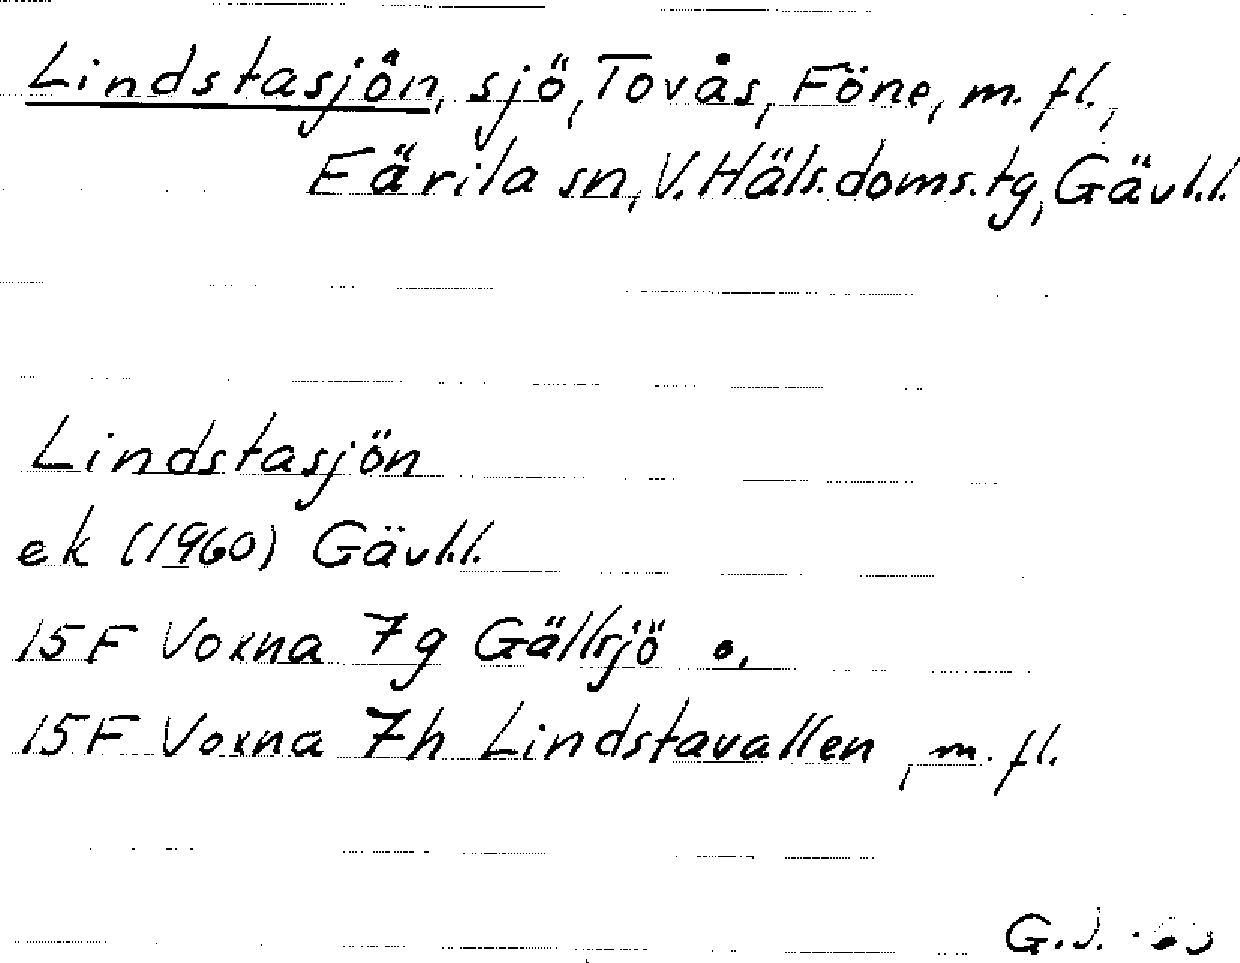 Lindstasjön, sjö, Tovås, Föne, m. fl.,
Färila sn, V. Häls. doms. tg, Gävl.l.
Lindstasjön
ek (1960) Gävl.l.
15F Voxna 7g Gällsjö o.
15F Voxna 7h Lindstavallen, m. fl.
G.J.